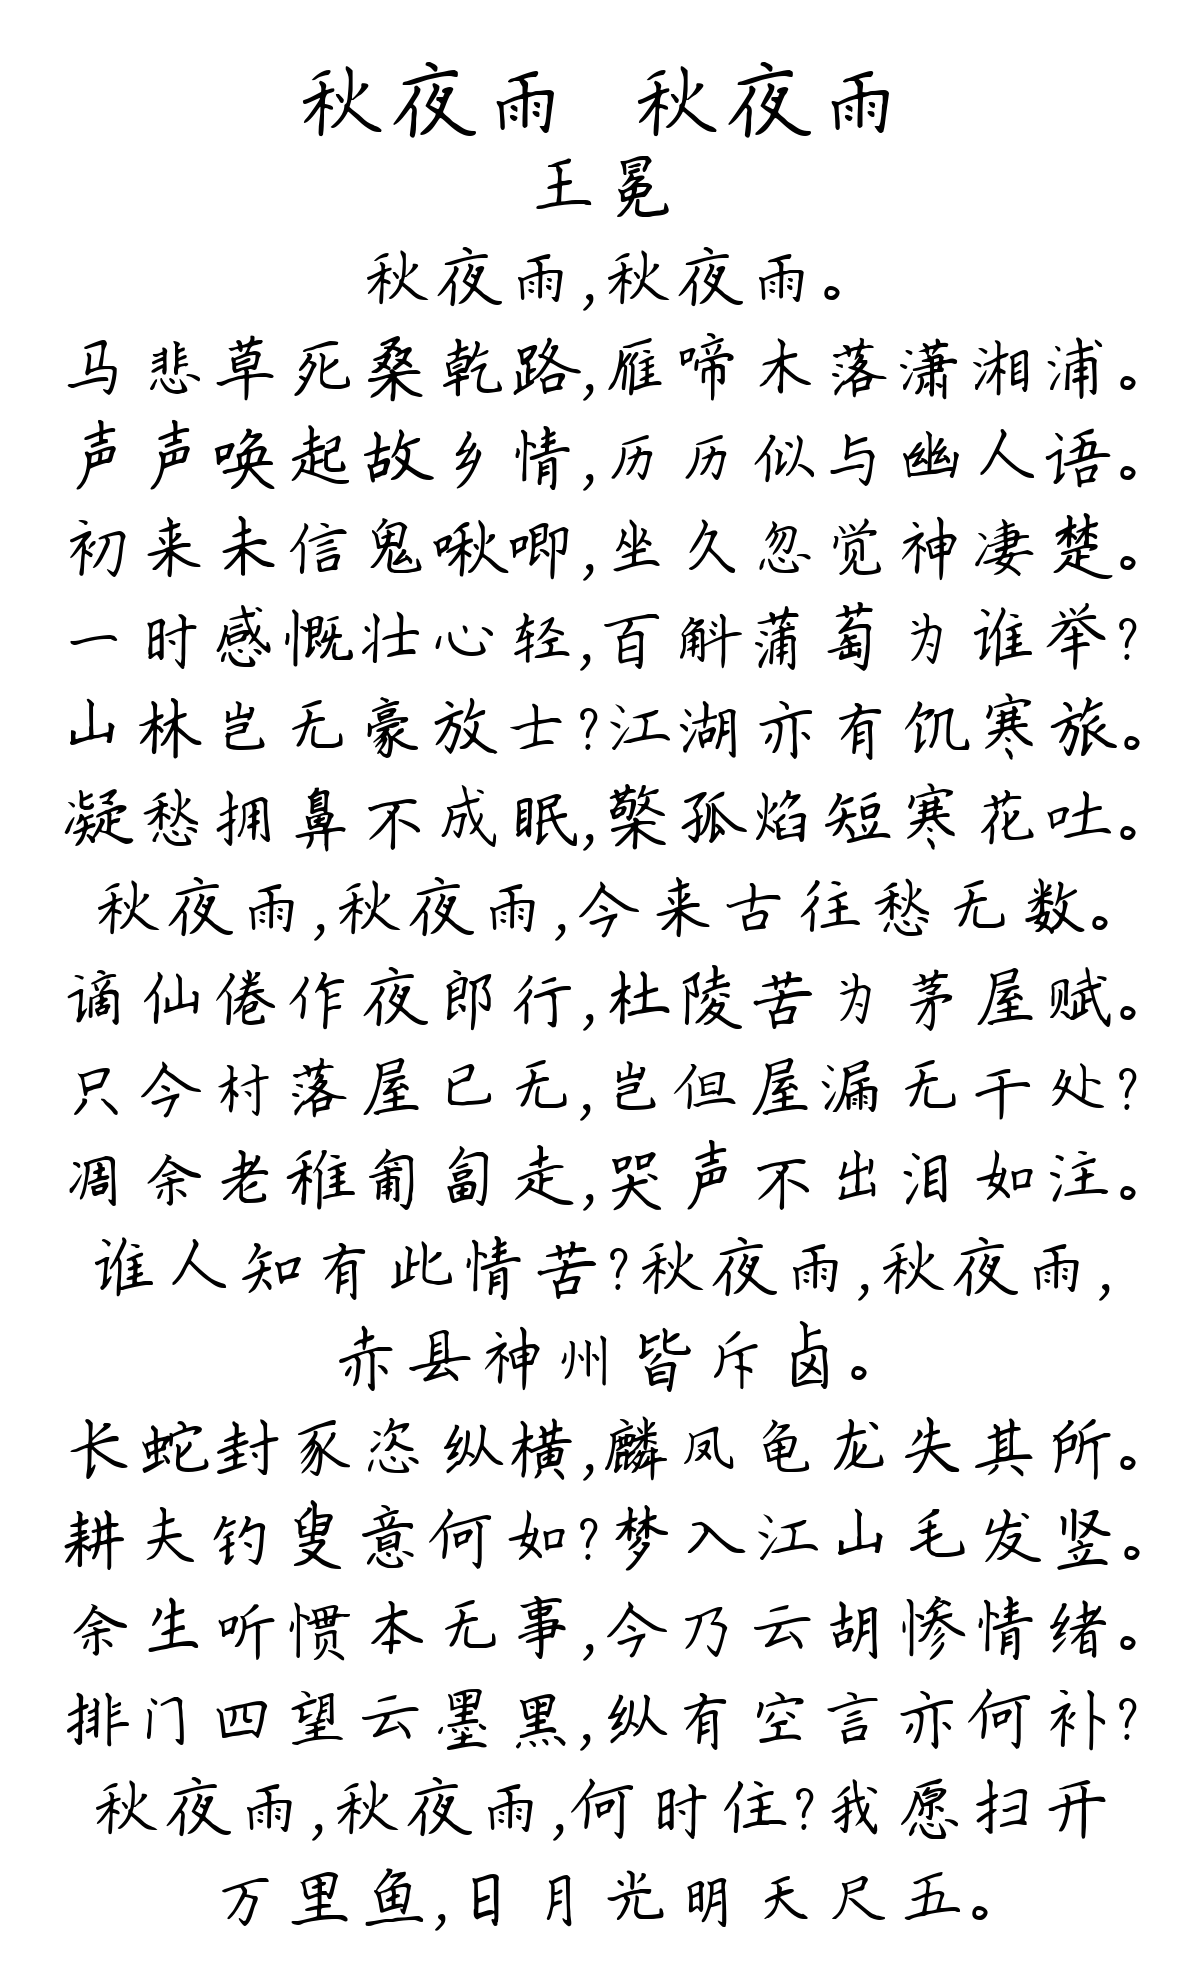 秋夜雨 秋夜雨
王冕
秋夜雨,秋夜雨。
马悲草死桑乾路,雁啼木落潇湘浦。
声声唤起故乡情,历历似与幽人语。
初来未信鬼啾唧,坐久忽觉神凄楚。
一时感慨壮心轻,百斛蒲萄为谁举?
山林岂无豪放士?江湖亦有饥寒旅。
凝愁拥鼻不成眠,檠孤焰短寒花吐。
秋夜雨,秋夜雨,今来古往愁无数。
谪仙倦作夜郎行,杜陵苦为茅屋赋。
只今村落屋已无,岂但屋漏无干处?
凋余老稚匍匐走,哭声不出泪如注。
谁人知有此情苦?秋夜雨,秋夜雨,
赤县神州皆斥卤。
长蛇封豕恣纵横,麟凤龟龙失其所。
耕夫钓叟意何如?梦入江山毛发竖。
余生听惯本无事,今乃云胡惨情绪。
排门四望云墨黑,纵有空言亦何补?
秋夜雨,秋夜雨,何时住?我愿扫开
万里鱼,日月光明天尺五。